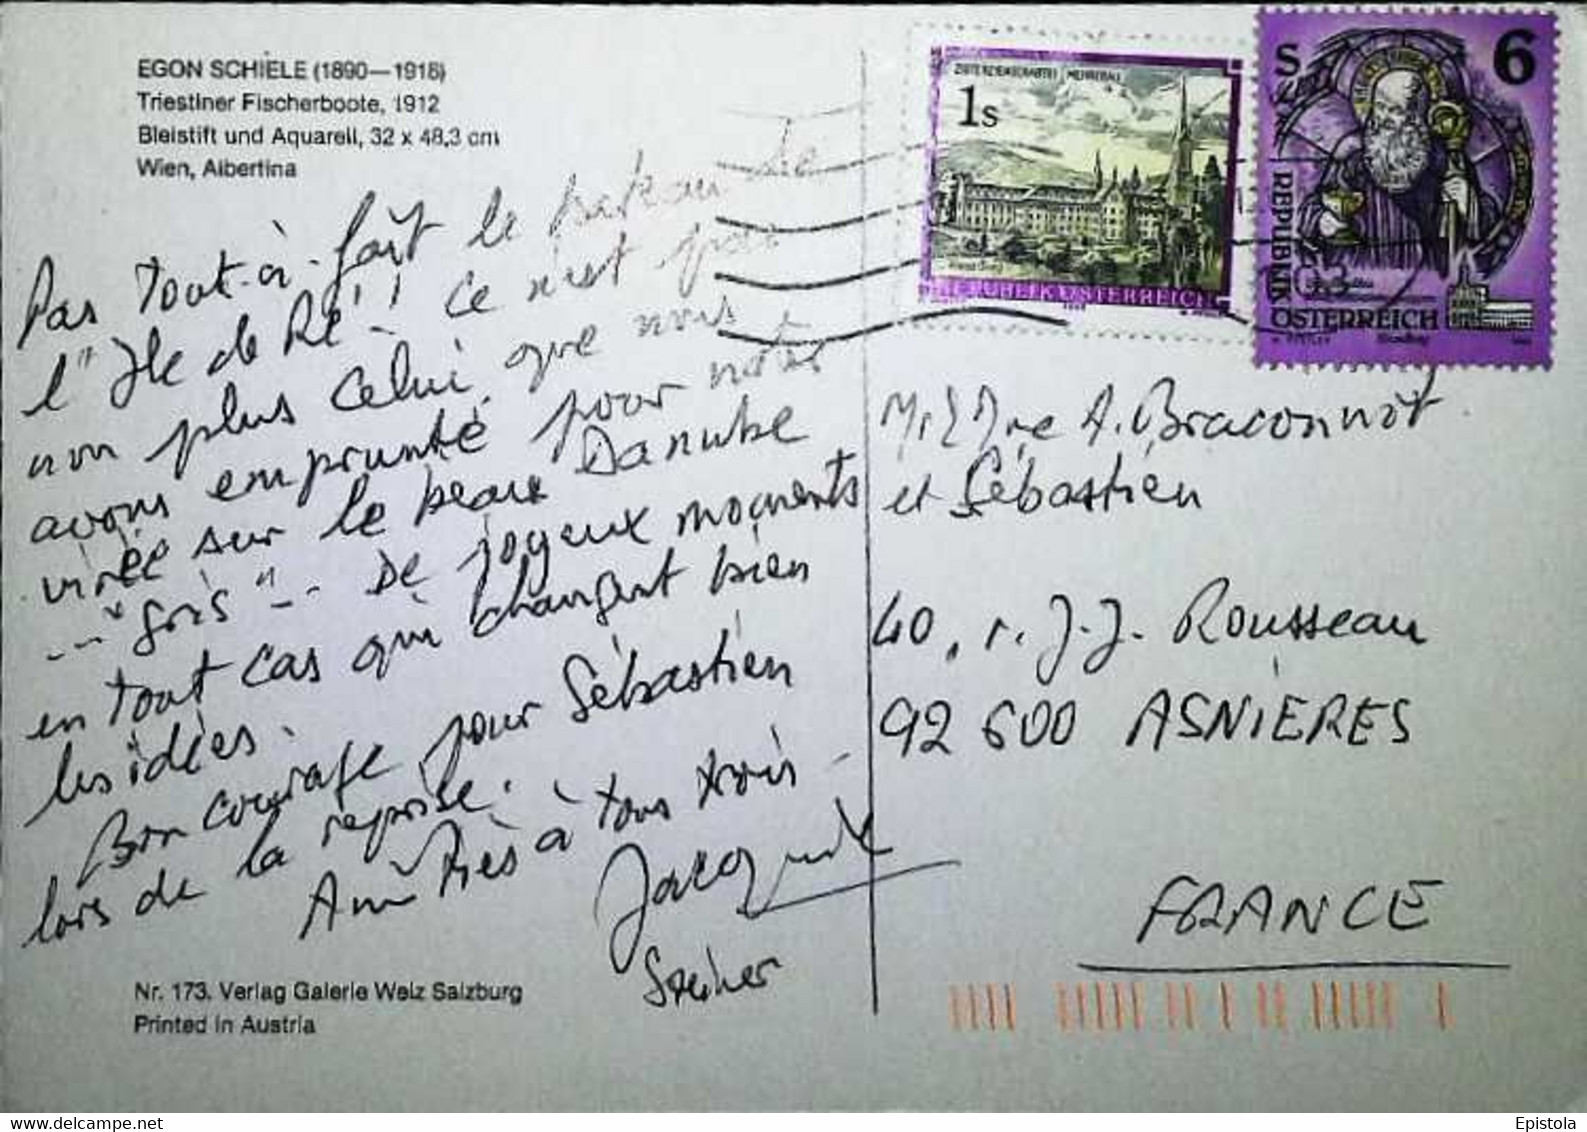 EGON SCHIELE (1890—1918)
Triestiner Fischerboote, 1912
Bleistift und Aquarell, 32 x 48,3 cm
Wien, Albertina
Pas tout-à-fait le bateau de
l'"Ile de Ré"! Ce n'est pas
non plus celui que nous
avons emprunté pour notre
virée sur le beau Danube
--"gris"-- De joyeux moments
en tout cas qui changent bien
les idées.
Bon courage pour Sébastien
lors de la reprise.
Amitiés à tous trois -
Jacques
Nr. 173. Verlag Galerie Welz Salzburg
Printed in Austria
1s
ZISTERZIENSERABTEI MEHRERAU
REPUBLIK ÖSTERREICH
S 6
REPUBLIK
ÖSTERREICH
Mr & Mme A. Braconnot
et Sébastien
40, r. J.J. Rousseau
92 600 ASNIERES
FRANCE
Epistola
www.delcampe.net